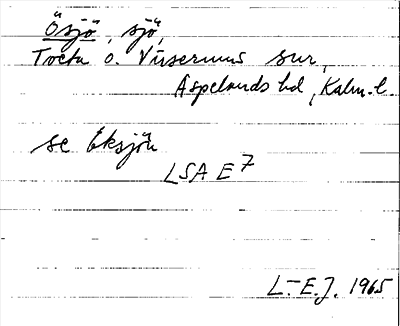 Ösjö, sjö,
Tveta o. Virserums snr,
Aspelands hd, Kalm. l.
se Eksjön
LSA E7
L.-E.J. 1965